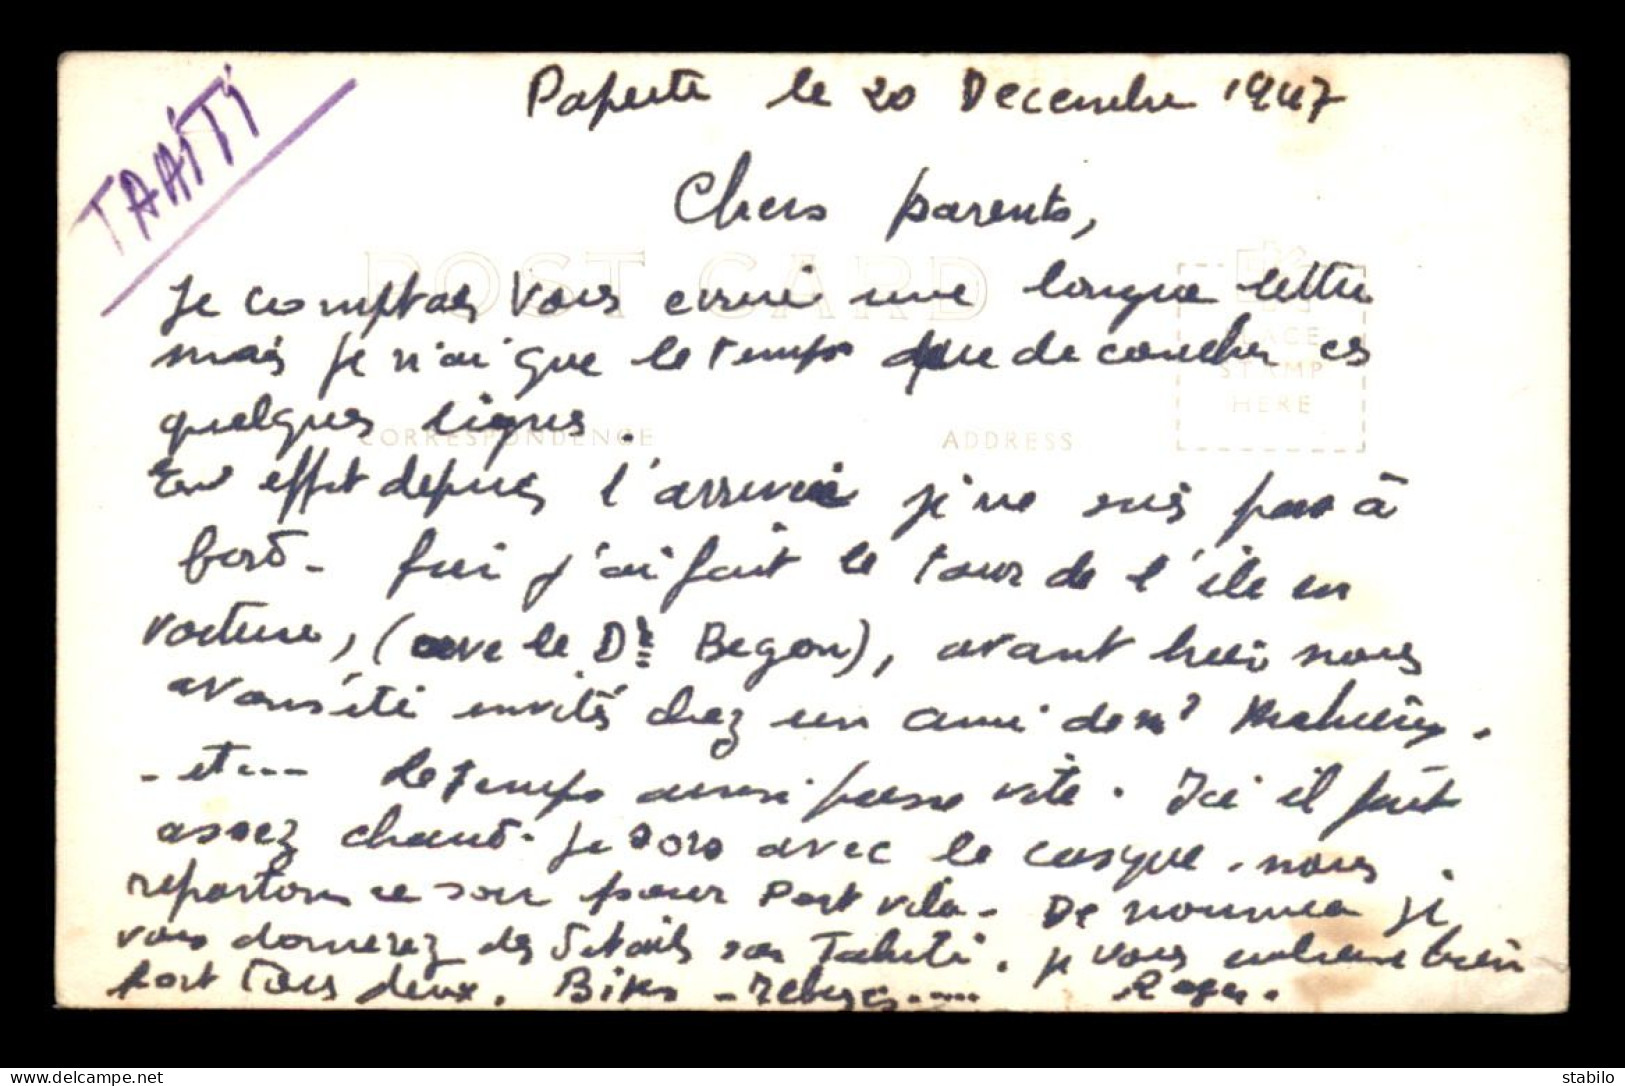 TAHITI
Papeete le 20 Decembre 1947
Chers parents,
POST CARD
Je comptais Vous ecrire une longue lettre
mais je n'ai que le temps que de coucher ces
PLACE
STAMP
HERE
quelques lignes.
CORRESPONDENCE
ADDRESS
En effet depuis l'arrivée je ne suis pas à
bord - j'ai fait le tour de l'ile en
voiture, (avec le Dr Begon), avant hier nous
avons été invités chez un ami de Mr
- et --- le temps aussi passe vite. Ici il fait
assez chaud. Je sors avec le casque. nous
repartons ce soir pour Port Vila - De Nouméa je
vous donnerez des détails sur Tahiti. je vous embrasse bien
fort Tous deux. Bises - Roger.